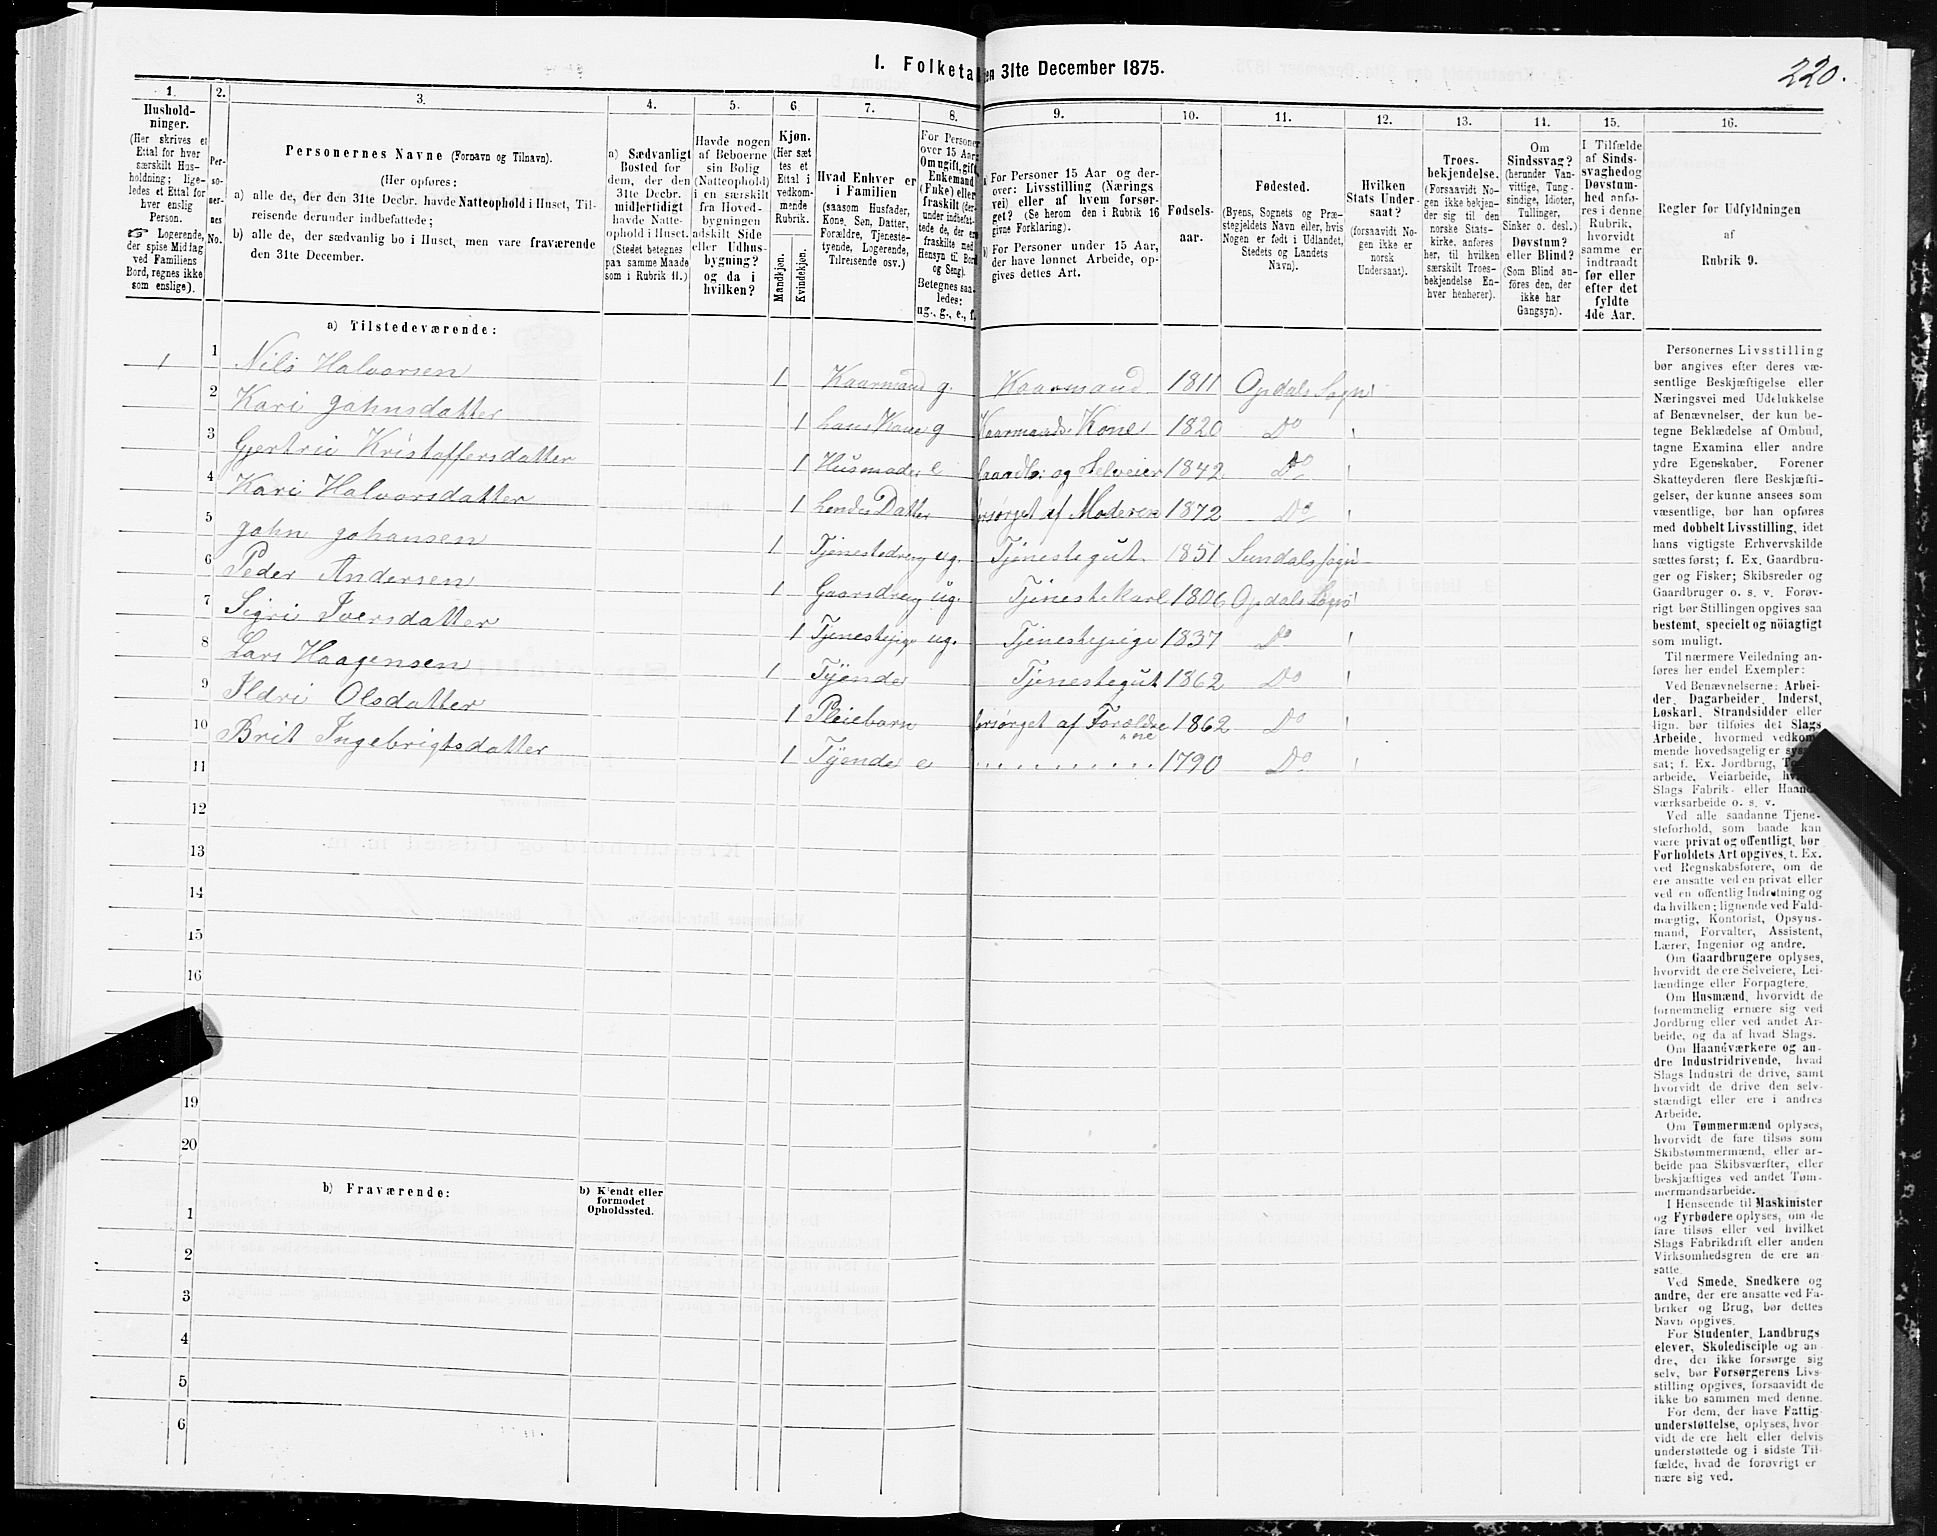 220.
I. Folketal den 31te December 1875.
1. 2. 3. 4. 5. 6. 7. 8. 9. 10. 11. 12. 13. 14. 15. 16.
Hushold-
ninger.
(Her skrives et
Ettal for hver
særskilt Hus-
holdning; lige-
ledes et Ettal for
hver enslig
Person.
☞ Logerende,
der spise Middag
ved Familiens
Bord, regnes ikke
som enslige).
Per-
so-
ner-
nes
No.
Personernes Navne (Fornavn og Tilnavn).
(Her opføres:
a) alle de, der den 31te Decbr. havde Natteophold i Huset, Til-
reisende derunder indbefattede;
b) alle de, der sædvanlig bo i Huset, men vare fraværende
den 31te December.
a) Sædvanligt
Bosted for
dem, der den
31te Decbr.
midlertidigt
havde Natte-
ophold i Huset.
(Stedet betegnes
paa samme Maade
som i Rubrik 11.)
Havde nogen
af Beboerne
sin Bolig
(Natteophold)
i en særskilt
fra Hoved-
bygningen
adskilt Side
eller Udhus-
bygning?
og da i
hvilken?
Kjøn.
(Her sæt
tes et
Ettal i
vedkom-
mende
Rubrik.
Mandkjøn.
Kvindekjøn.
Hvad Enhver er
i Familien
(saasom Husfader,
Kone, Søn, Datter,
Forældre, Tjeneste-
tyende, Logerende,
Tilreisende osv.)
For Personer
over 15 Aar:
Om ugift, gift,
Enkemand
(Enke) eller
fraskilt (der-
under indbefat-
tede de, der ere
fraskilte med
Hensyn til Bord
og Seng).
Betegnes saa-
ledes:
ug., g., e., f.
a) For Personer 15 Aar og der-
over: Livsstilling (Nærings
vei) eller af hvem forsør-
get? (Se herom den i Rubrik 16
givne Forklaring).
b) For Personer under 15 Aar,
der have lønnet Arbeide, op-
gives dettes Art.
Fødsels-
aar.
Fødested.
(Byens, Sognets og Præ-
stegjeldets Navn eller, hvis
Nogen er født i Udlandet,
Stedets og Landets
Navn).
Hvilken
Stats Under-
saat?
(forsaavidt No-
gen ikke er
norsk
Undersaat).
Troes-
bekjendelse.
(Forsaavidt No-
gen ikke bekjen-
der sig til den
norske Stats-
kirke, anføres
her, til hvilken
særskilt Troes-
bekjendelse En-
hver henhører).
Om
Sindssvag?
(herunder Van-
vittige, Tung-
sindige, Idioter,
Tullinger,
Sinker o. desl.)
Døvstum?
eller Blind?
(Som Blind an-
føres den, der
ikke har
Gangsyn).
I Tilfælde
af Sinds-
svaghed og
Døvstum-
hed anfø-
res i denne
Rubrik,
hvorvidt
samme er
indtraadt
før eller
efter det
fyldte
4de Aar.
Regler for Udfyldningen
af
Rubrik 9.
a) Tilstedeværende:
1 1 Nils Halvorsen 1 Kaarmand g. Kaarmand 1811 Opdals Sogn
2 Kari Johnsdatter 1 hans Kone g Kaarmands Kone 1820 Do
3 Gjertrui Kristoffersdatter 1 Husmoder e Gaardb: og Selveier 1842 Do
4 Kari Halvorsdatter 1 hendes Datter forsørget af Moderen 1872 Do
5 John Johansen 1 Tjenestedreng ug. Tjenestegut 1851 Sundals Sogn
6 Peder Andersen 1 Gaarsdreng ug. Tjenestekarl 1806 Opdals Sogn
7 Sigri Iversdatter 1 Tjenestepige ug. Tjenestepige 1837 Do
8 Lars Haagensen 1 Tyende Tjenestegut 1862 Do
9 Ildri Olsdatter 1 Pleiebarn forsørget af Forældre 1862 Do
"ne
10 Brit Ingebrigtsdatter 1 Tyende e 1790 Do
11
12
13
14
15
16
19
20
b) Fraværende:
b) Kjendt eller
formodet
Opholdssted.
1
2
3
4
5
6
Personernes Livsstilling
bør angives efter deres væ-
sentlige Beskjæftigelse eller
Næringsvei med Udelukkelse
af Benævnelser, der kun be-
tegne Beklædelse af Ombud,
tagne Examina eller andre
ydre Egenskaber. Forener
Skatteyderen flere Beskjæfti-
gelser, der kunne ansees som
væsentlige, bør han opføres
med dobbelt Livsstilling, idet
hans vigtigste Erhvervskilde
sættes først; f. Ex. Gaardbru-
ger og Fisker; Skibsreder og
Gaardbruger o. s. v. Forøv-
rigt bør Stillingen opgives saa
bestemt, specielt og nöiagtigt
som muligt.
Til nærmere Veiledning an-
føres her endel Exempler:
Ved Benævnelserne: Arbei-
der, Dagarbeider, Inderst,
Løskarl, Strandsidder eller
lign. bør tilføies det Slags
Arbeide, hvormed vedkom-
mende hovedsagelig er syssel-
sat; f. Ex. Jordbrug,
arbeide, Veiarbeide,
Slags Fabrik- eller Haand-
værksarbeide o. s. v.
Ved alle saadanne Tjene-
steforhold, som baade kan
være privat og offentligt, bør
Forholdets Art opgives, t. Ex.
ved Regnskabsførere, om de
ere ansatte ved en privat eller
ved en offentlig Indretning og
da hvilken; lignende ved Fuld-
mægtig, Kontorist, Opsyns-
mand, Forvalter, Assistent,
Lærer, Ingeniør og andre.
Om Gaardbrugere oplyses,
hvorvidt de ere Selveiere, Lei-
lændinge eller Forpagtere.
Om Husmænd, hvorvidt de
fornemmelig ernære sig ved
Jordbrug eller ved andet Ar-
beide, og da af hvad Slags.
Om Haandværkere og an-
dre Industridrivende, hvad
Slags Industri de drive, samt
hvorvidt de drive den selv-
stændigt eller ere i andres
Arbeide.
Om Tømmermænd oplyses,
hvorvidt de fare tilsøs som
Skibstømmermænd, eller ar-
beide paa Skibsværfter, eller
beskjæftiges ved andet Tøm-
mermandsarbeide.
I Henseende til Maskinister
og Fyrbødere oplyses, om de
fare tilsøs eller ved hvilket
Slags Fabrikdrift eller anden
Virksomhedsgren de ere an-
satte.
Ved Smede, Snedkere og
andre, der ere ansatte ved Fa-
briker og Brug, bør dettes
Navn opgives.
For Studenter, Landbrugs
elever, Skoledisciple og an-
dre, der ikke forsørge sig
selv, bør Forsørgerens Livs-
stilling opgives, forsaavidt de
ikke bo sammen med denne.
For dem, der have Fattig-
understøttelse, oplyses, hvor-
vidt de ere helt eller delvis
understøttede og i sidste Til-
fælde, hvad de forøvrigt er-
nære sig ved.